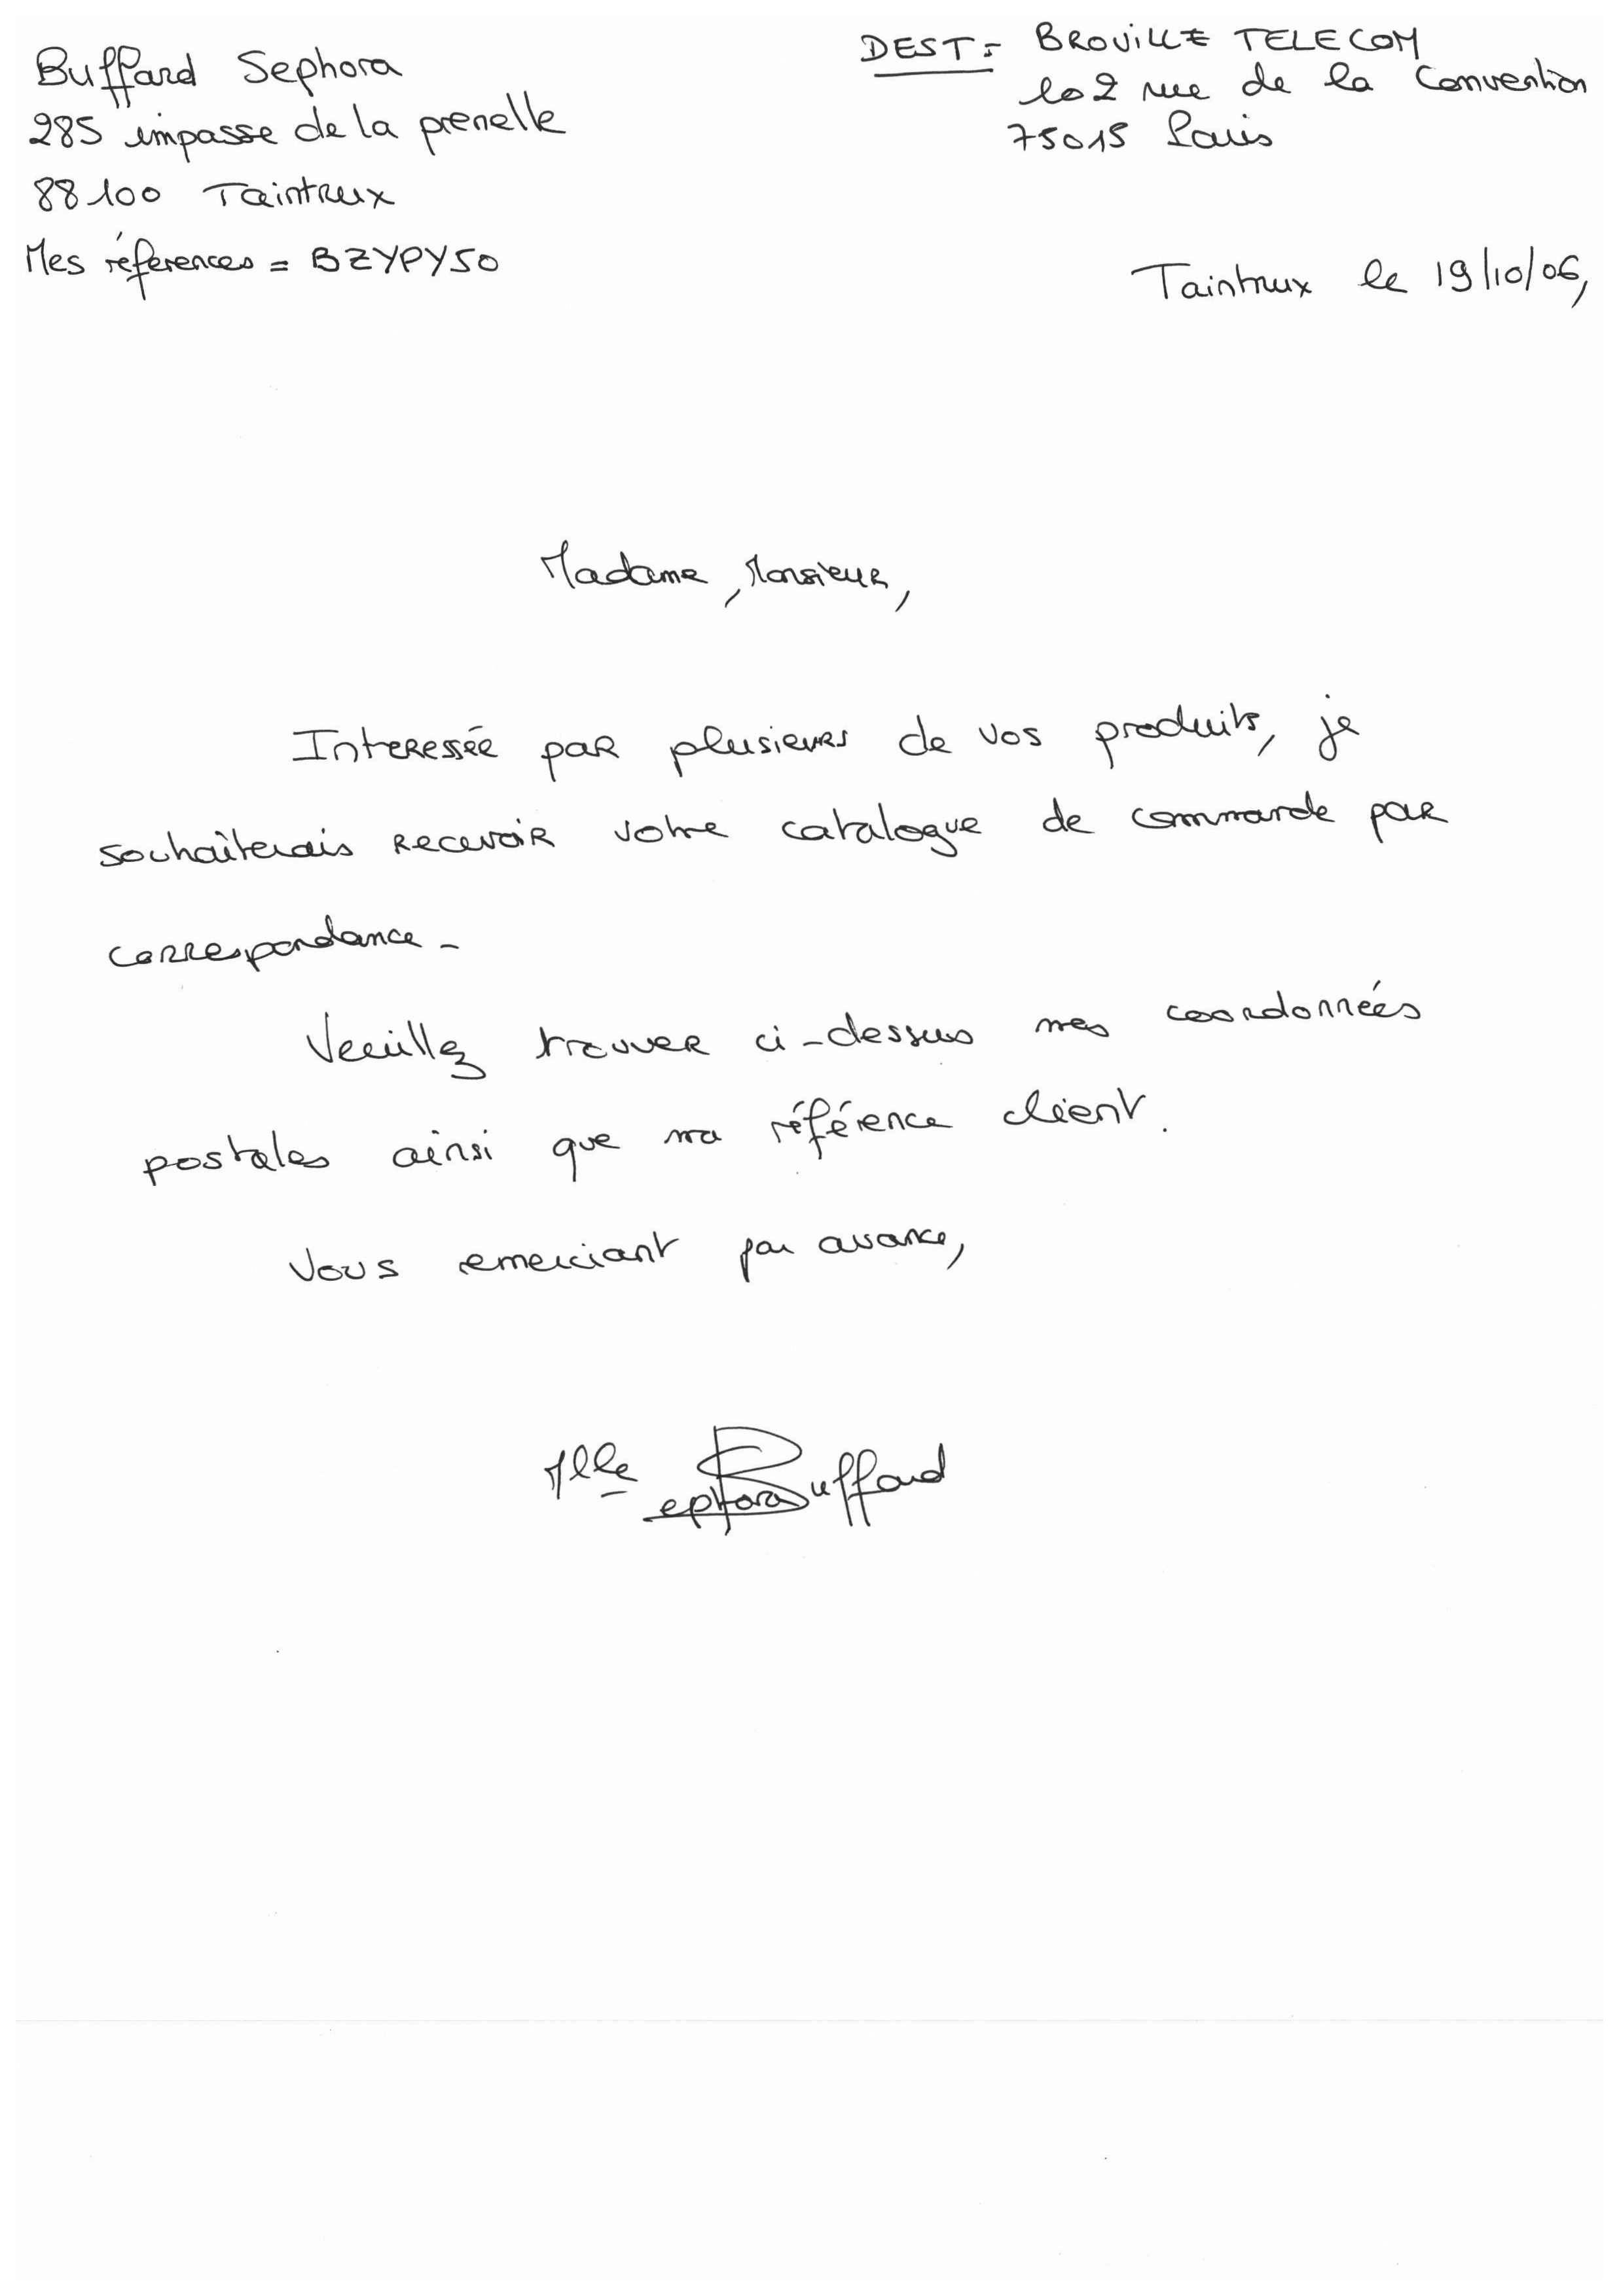 Buffard Sephora
285 impasse de la prenelle
88100 Taintrux
Mes réferences = BZYPY50
DEST= BROUILLE TELECOM
102 rue de la Convention
75015 Paris
Taintrux le 19/10/06,
Madame, Monsieur,
Interessée par plusieurs de vos produits, je
souhaîterais recevoir votre catalogue de commande par
correspondance-
Veuillez trouver ci-dessus mes coordonnées
postales ainsi que ma référence client.
Vous remerciant par avance,
Mlle Sephora Buffard